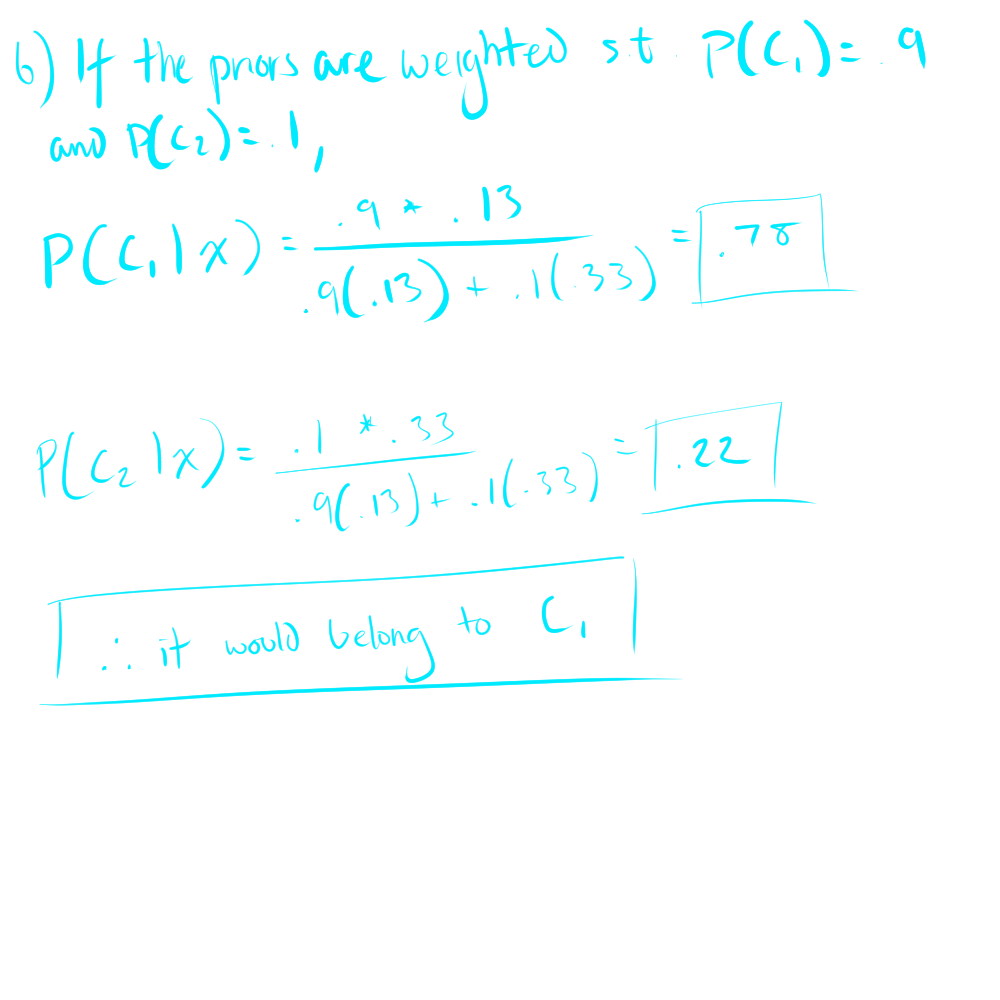 b) If the priors are weighted s.t. P(C₁) = .9
and P(C₂) = .1,
P(C₁|x) = .9 * .13 / .9(.13) + .1(.33) = .78
P(C₂|x) = .1 * .33 / .9(.13) + .1(.33) = .22
∴ it would belong to C₁